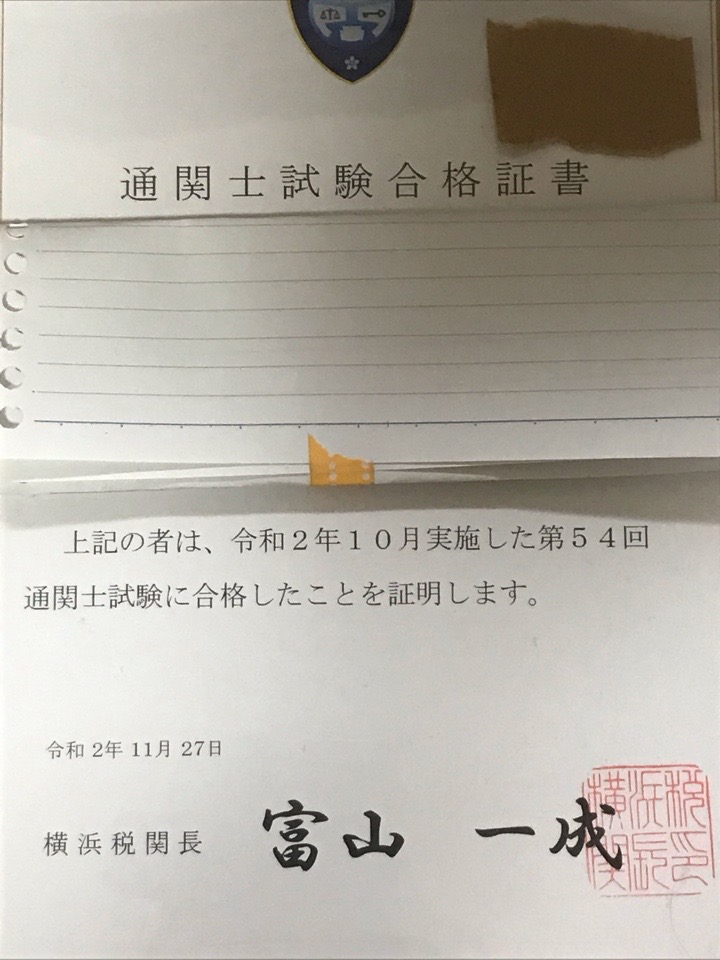 通関士試験合格証書
上記の者は、令和２年１０月実施した第５４回
通関士試験に合格したことを証明します。
令和 2年 11月 27日
横浜税関長 富山 一成
横浜税
関長印